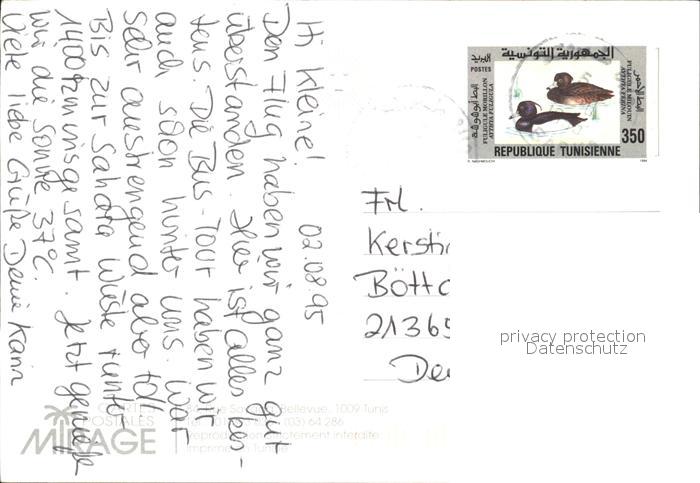 Hi Kleine! 02.08.95
Den Flug haben wir ganz gut
überstanden. Hier ist alles bes-
tens. Die Bus-Tour haben wir
auch schon hinter uns. War
sehr anstrengend aber toll.
Bis zur Sahara Wüste runter
1400 km insgesamt. Jetzt genießen
wir die Sonne 37°C.
Viele liebe Grüße Deine Karin
الجمهورية التونسية
البريد
POSTES
البط أبو فروة
FULIGULE MORILLON
AYTHYA FULIGULA
FULIGULE MILOUIN
AYTHYA FERINA
البط الأحمر
350
REPUBLIQUE TUNISIENNE
1994
Frl.
Kerstin
Böttc
21365
De
privacy protection
Datenschutz
CARTES
POSTALES
MIRAGE
Bellevue, 1009 Tunis
64 286
reproduction strictement interdite
Imprimé en Tunisie